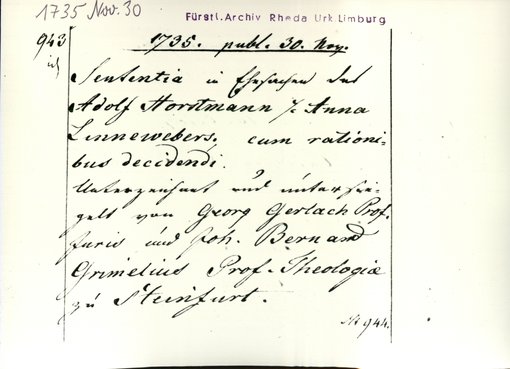 1735 Nov. 30
Fürstl. Archiv Rheda Urk Limburg
943
1735. publ. 30. Nov.
Sententia in Ehesachen des
Adolf Horstmann /: Anna
Linnewebers, cum rationi=
bus decidendi.
Unterzeichnet und untersie=
gelt von Georg Gerlach Prof.
Juris und Joh. Bernard
Grimelius Prof. Theologiæ
zu Steinfurt.
944.